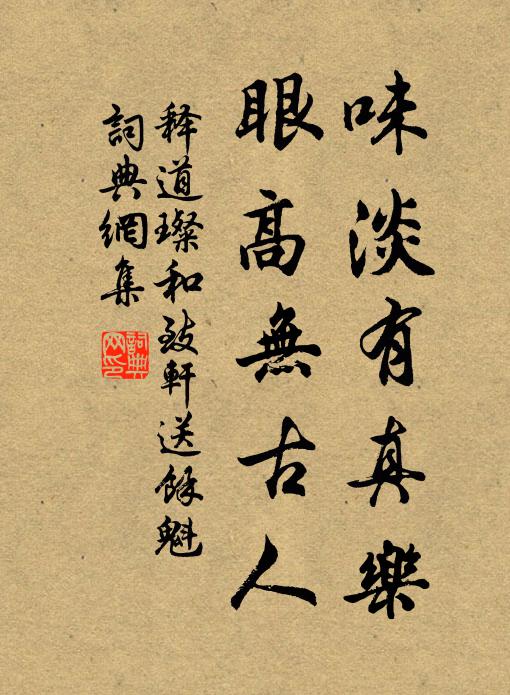 味淡有真樂
眼高無古人
释道璨和致軒送餘魁
詞典網集
詞典
网印